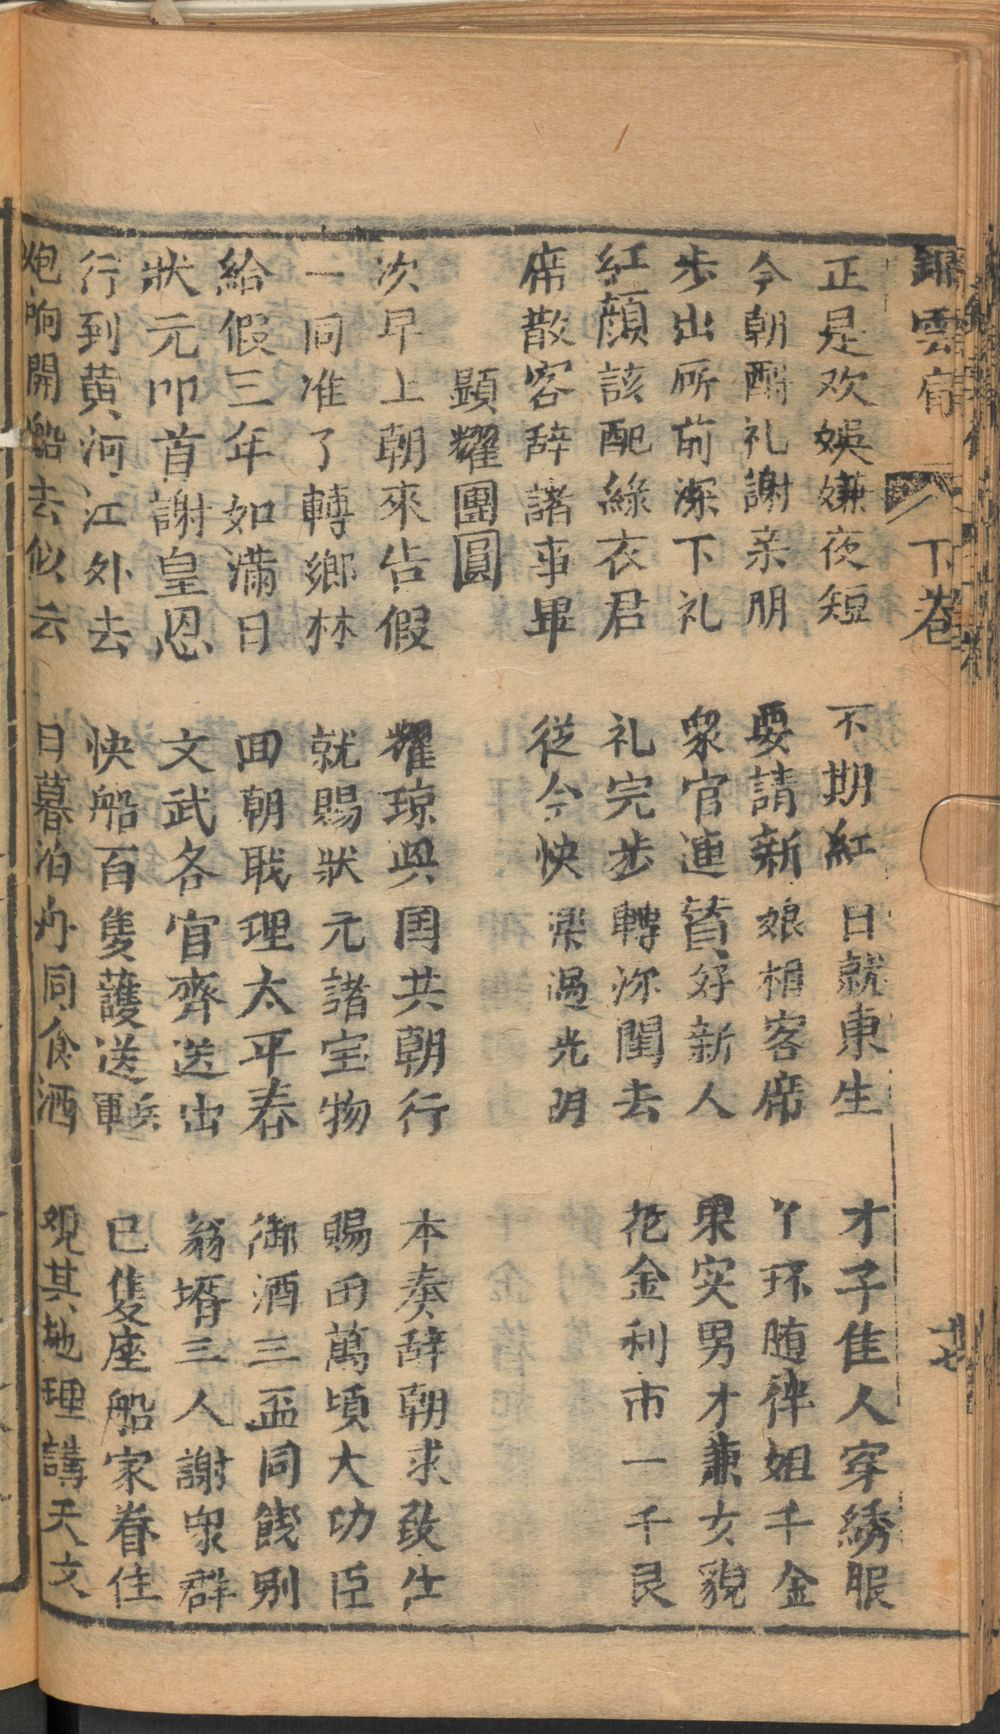 雲 下卷 廿七
正是欢娛嫌夜短 不期紅日就東生 才子佳人穿綉服
今朝酧礼謝亲朋 要請新娘相客席 丫环随伴姐千金
步出所前深下礼 衆官連賛好新人 果实男才兼女貌
紅顔該配綠衣君 礼完步轉深閨去 花金利市一千艮
席散客辞諸事畢 從今快樂過光阴
顕耀團圓
次早上朝來告假 耀琼與国共朝行 本奏辞朝求致仕
一同准了轉鄉林 就賜狀元諸宝物 賜田萬頃大功臣
給假三年如滿日 囬朝耺理太平春 御酒三盃同餞别
狀元叩首謝皇恩 文武各官齊送出 翁壻三人謝衆群
行到黄河江外去 快船百隻護送軍兵 已隻座船家眷住
炮响開船去似云 日暮泊舟同食酒 观其地理講天文